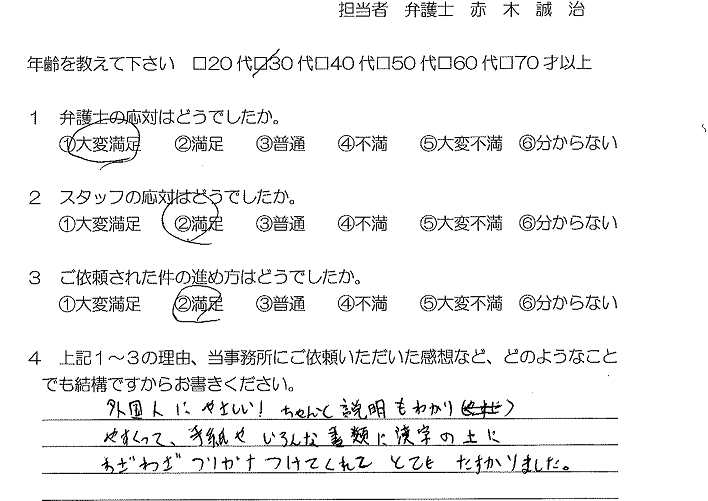 担当者 弁護士 赤 木 誠 治
年齢を教えて下さい □20代□30代□40代□50代□60代□70才以上
1 弁護士の応対はどうでしたか。
①大変満足 ②満足 ③普通 ④不満 ⑤大変不満 ⑥分からない
2 スタッフの応対はどうでしたか。
①大変満足 ②満足 ③普通 ④不満 ⑤大変不満 ⑥分からない
3 ご依頼された件の進め方はどうでしたか。
①大変満足 ②満足 ③普通 ④不満 ⑤大変不満 ⑥分からない
4 上記1～3の理由、当事務所にご依頼いただいた感想など、どのようなこと
でも結構ですからお書きください。
外国人にやさしい! ちゃんと説明もわかり
やすくって、手紙やいろんな書類に漢字の上に
わざわざフリガナつけてくれてとてもたすかりました。